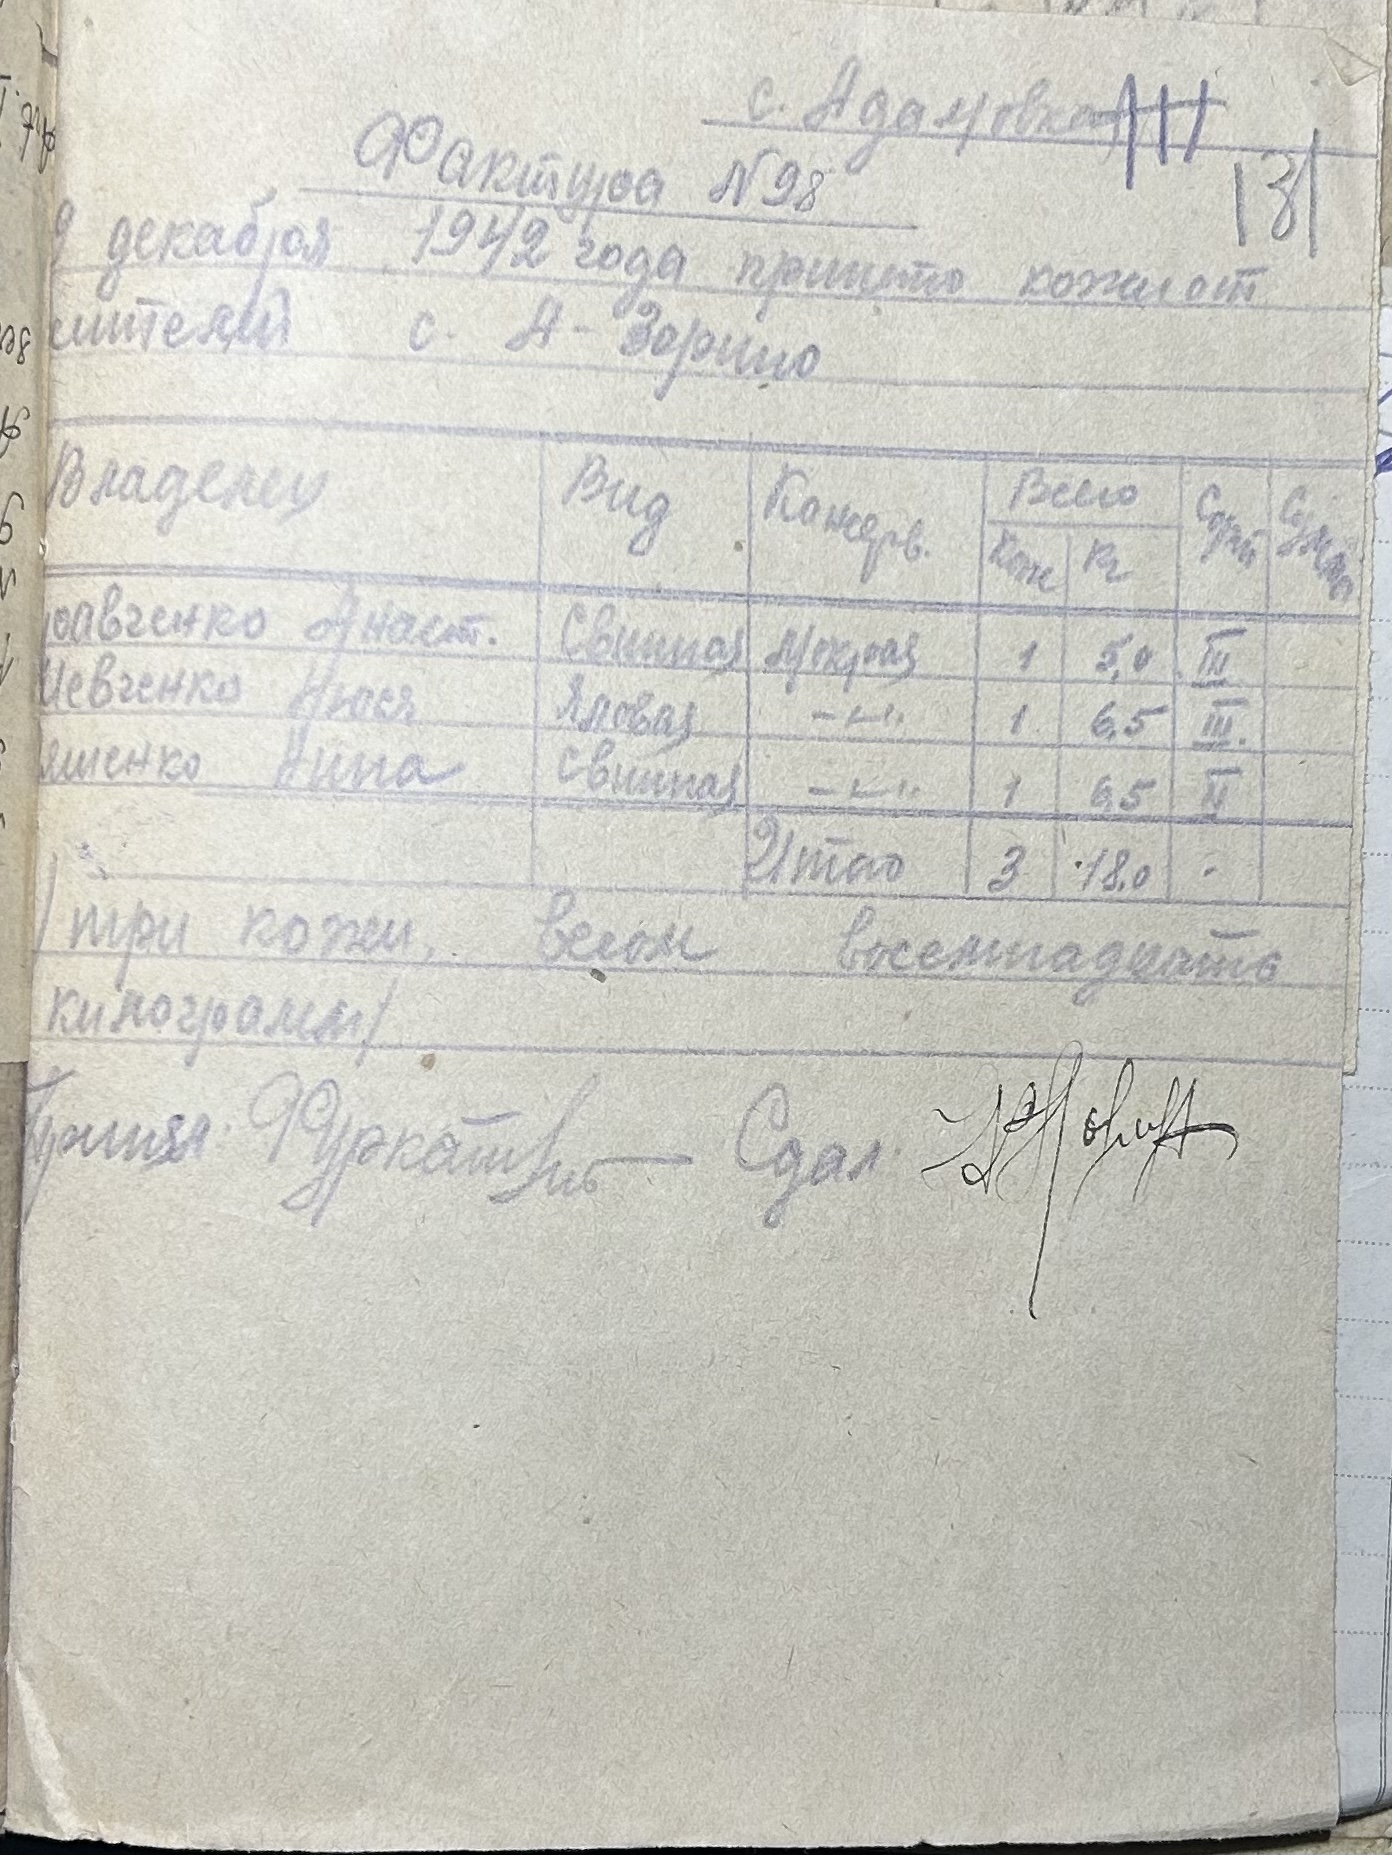 с. Адамовка
131
Фактура №98
9 декабря 1942 года принято кож от
жителей с. А-Зорино
Владелец Вид Консерв. Всего Сорт Сумма
Кож Кг
равченко Анаст. Свинная Мокрая 1 5,0 III
Шевченко Нюся Яловая -"- 1 6,5 III.
яшенко Нина Свинная -"- 1 6,5 II
Итого 3 18,0 -
/три кожи, весом восемнадцать
килограмм/
Принял. Сдал.